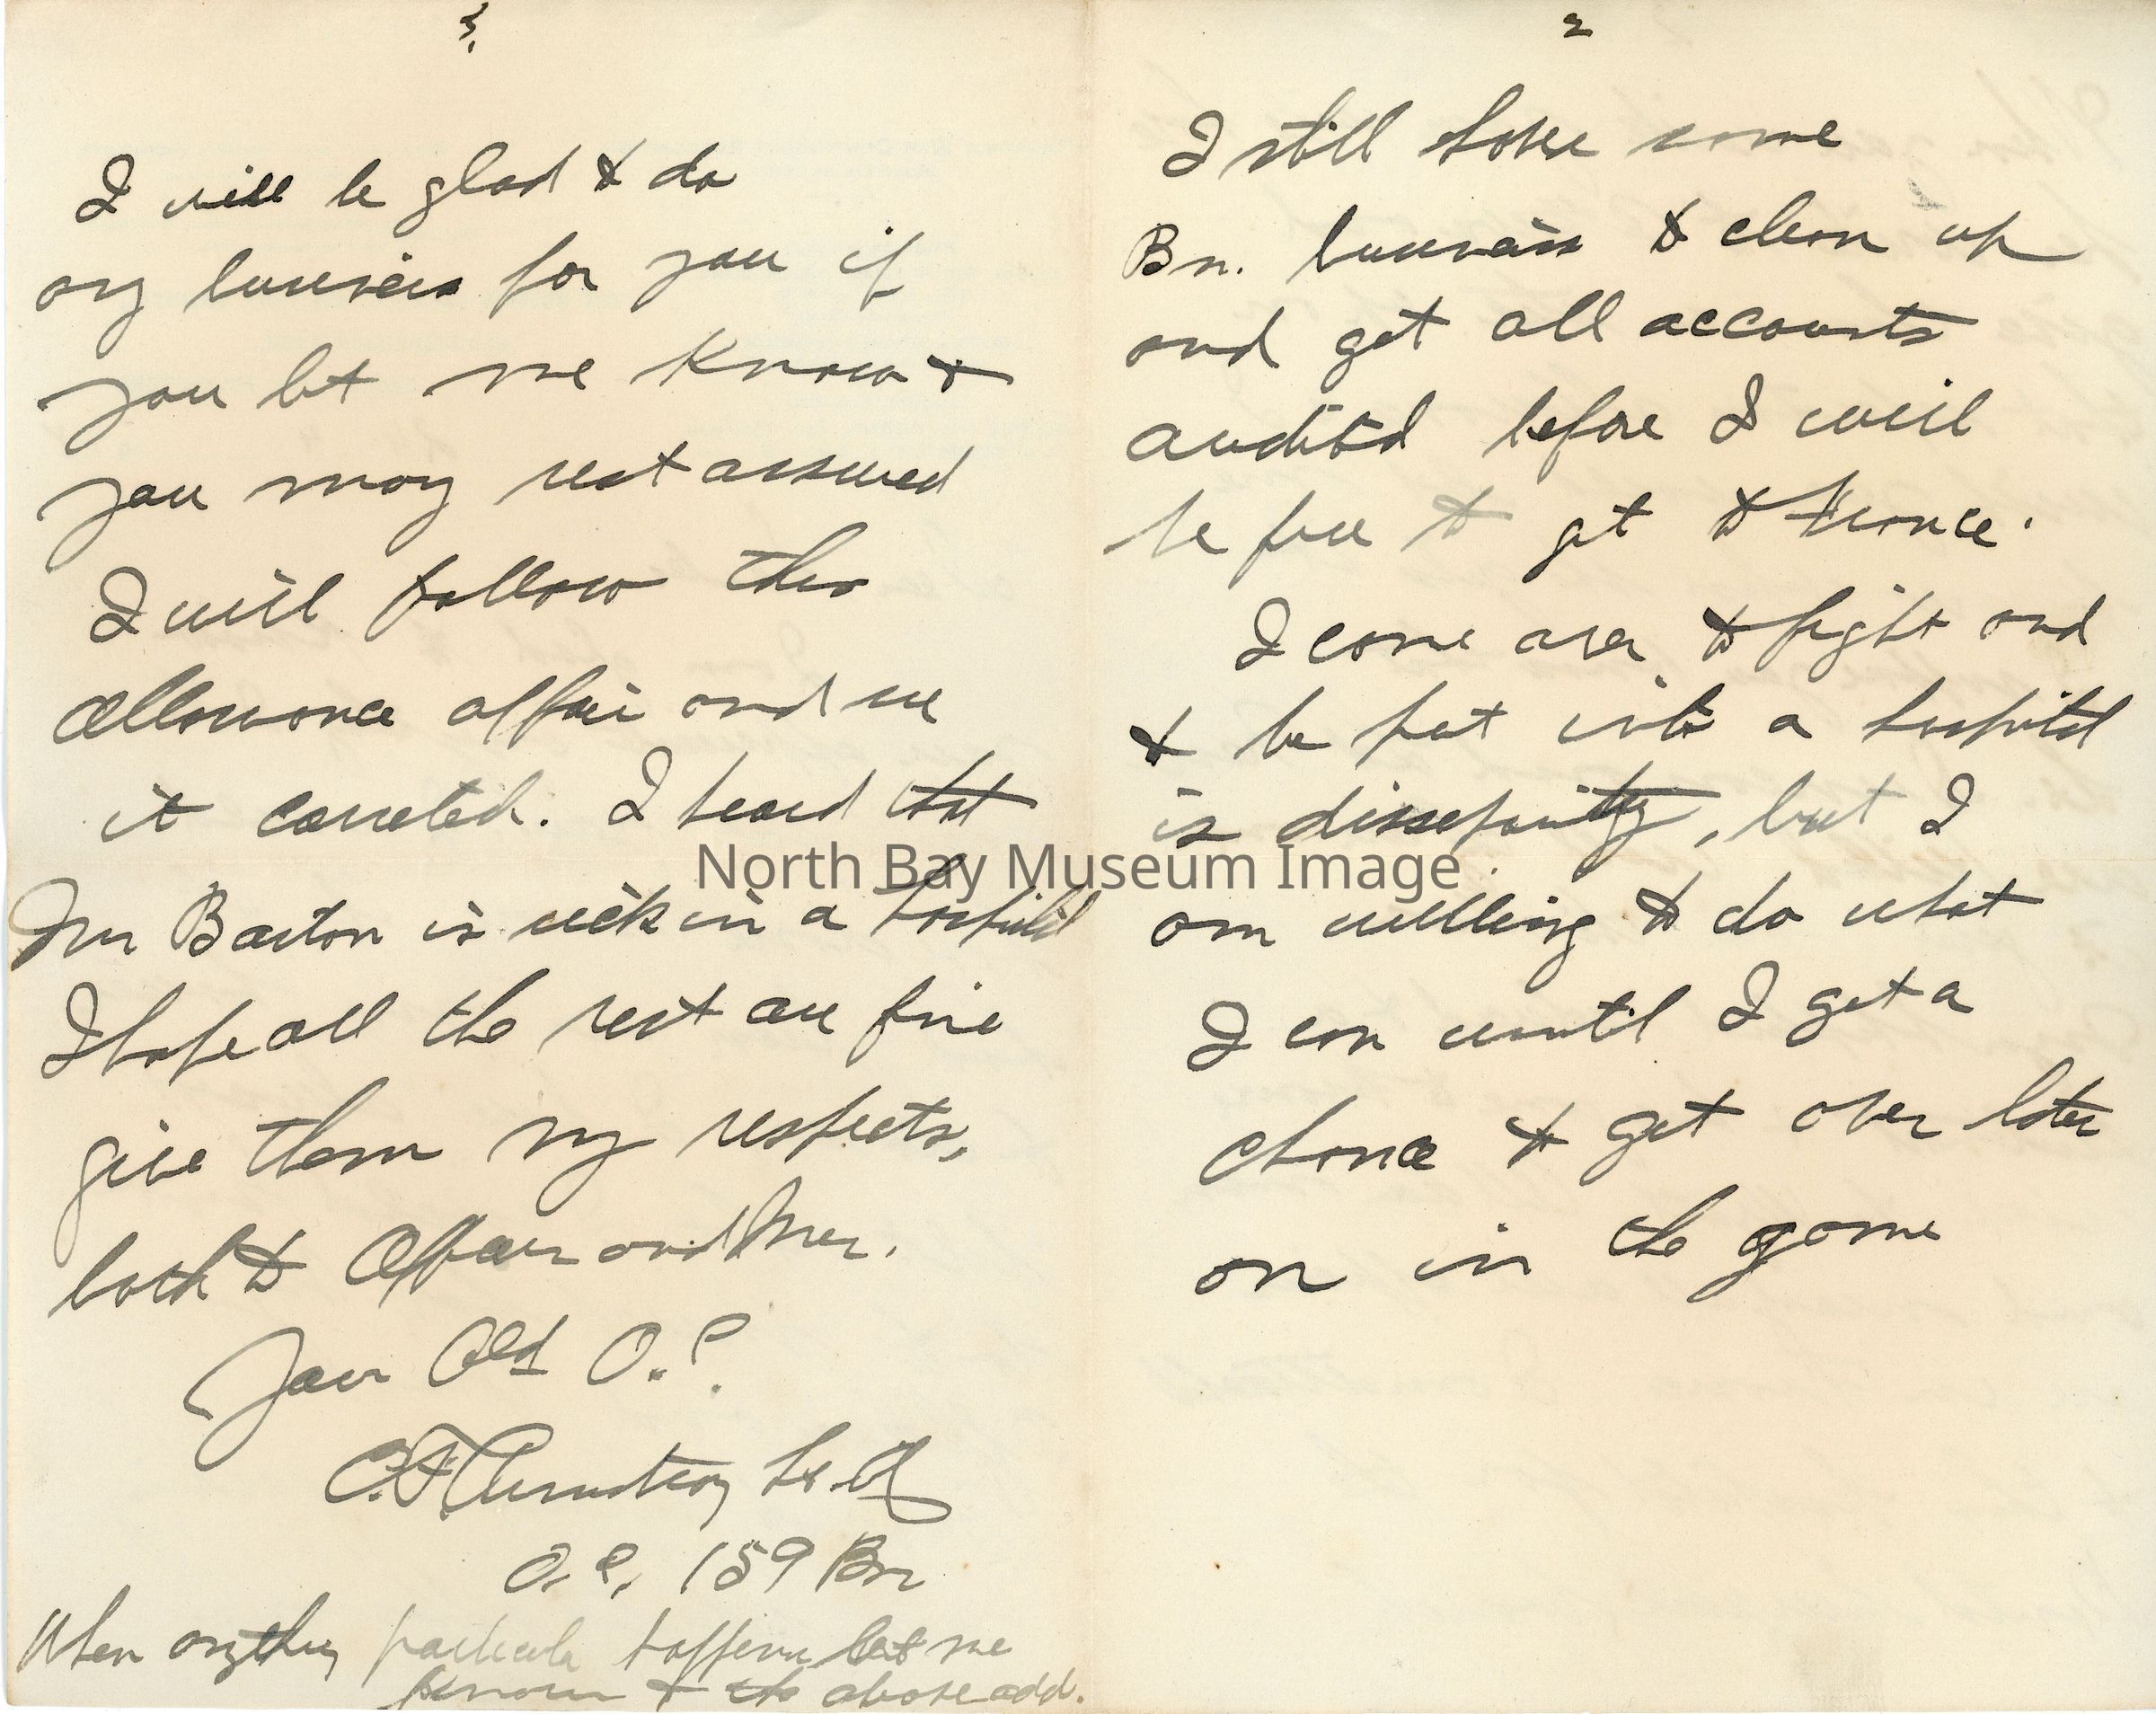 2
I still have some
Bn. business to clean up
and get all accounts
audited before I will
be free to get to France.
I come over to fight and
to be put into a hospital
is , but I
am willing to do what
I can until I get a
chance to get over later
on in the game
3.
I will be glad to do
any business for you if
you let me know &
you may rest assured
I will follow this
allowance affair and see
it corrected. I heard that
Mr Barton is sick in a hospital
I hope all the rest are fine
give them my respects,
both to Officers and Men.
Your Old O.C.
Armstrong Lt. Col
O.C. 159 Bn
When anything particular happens let me
know to the above add.
North Bay Museum Image